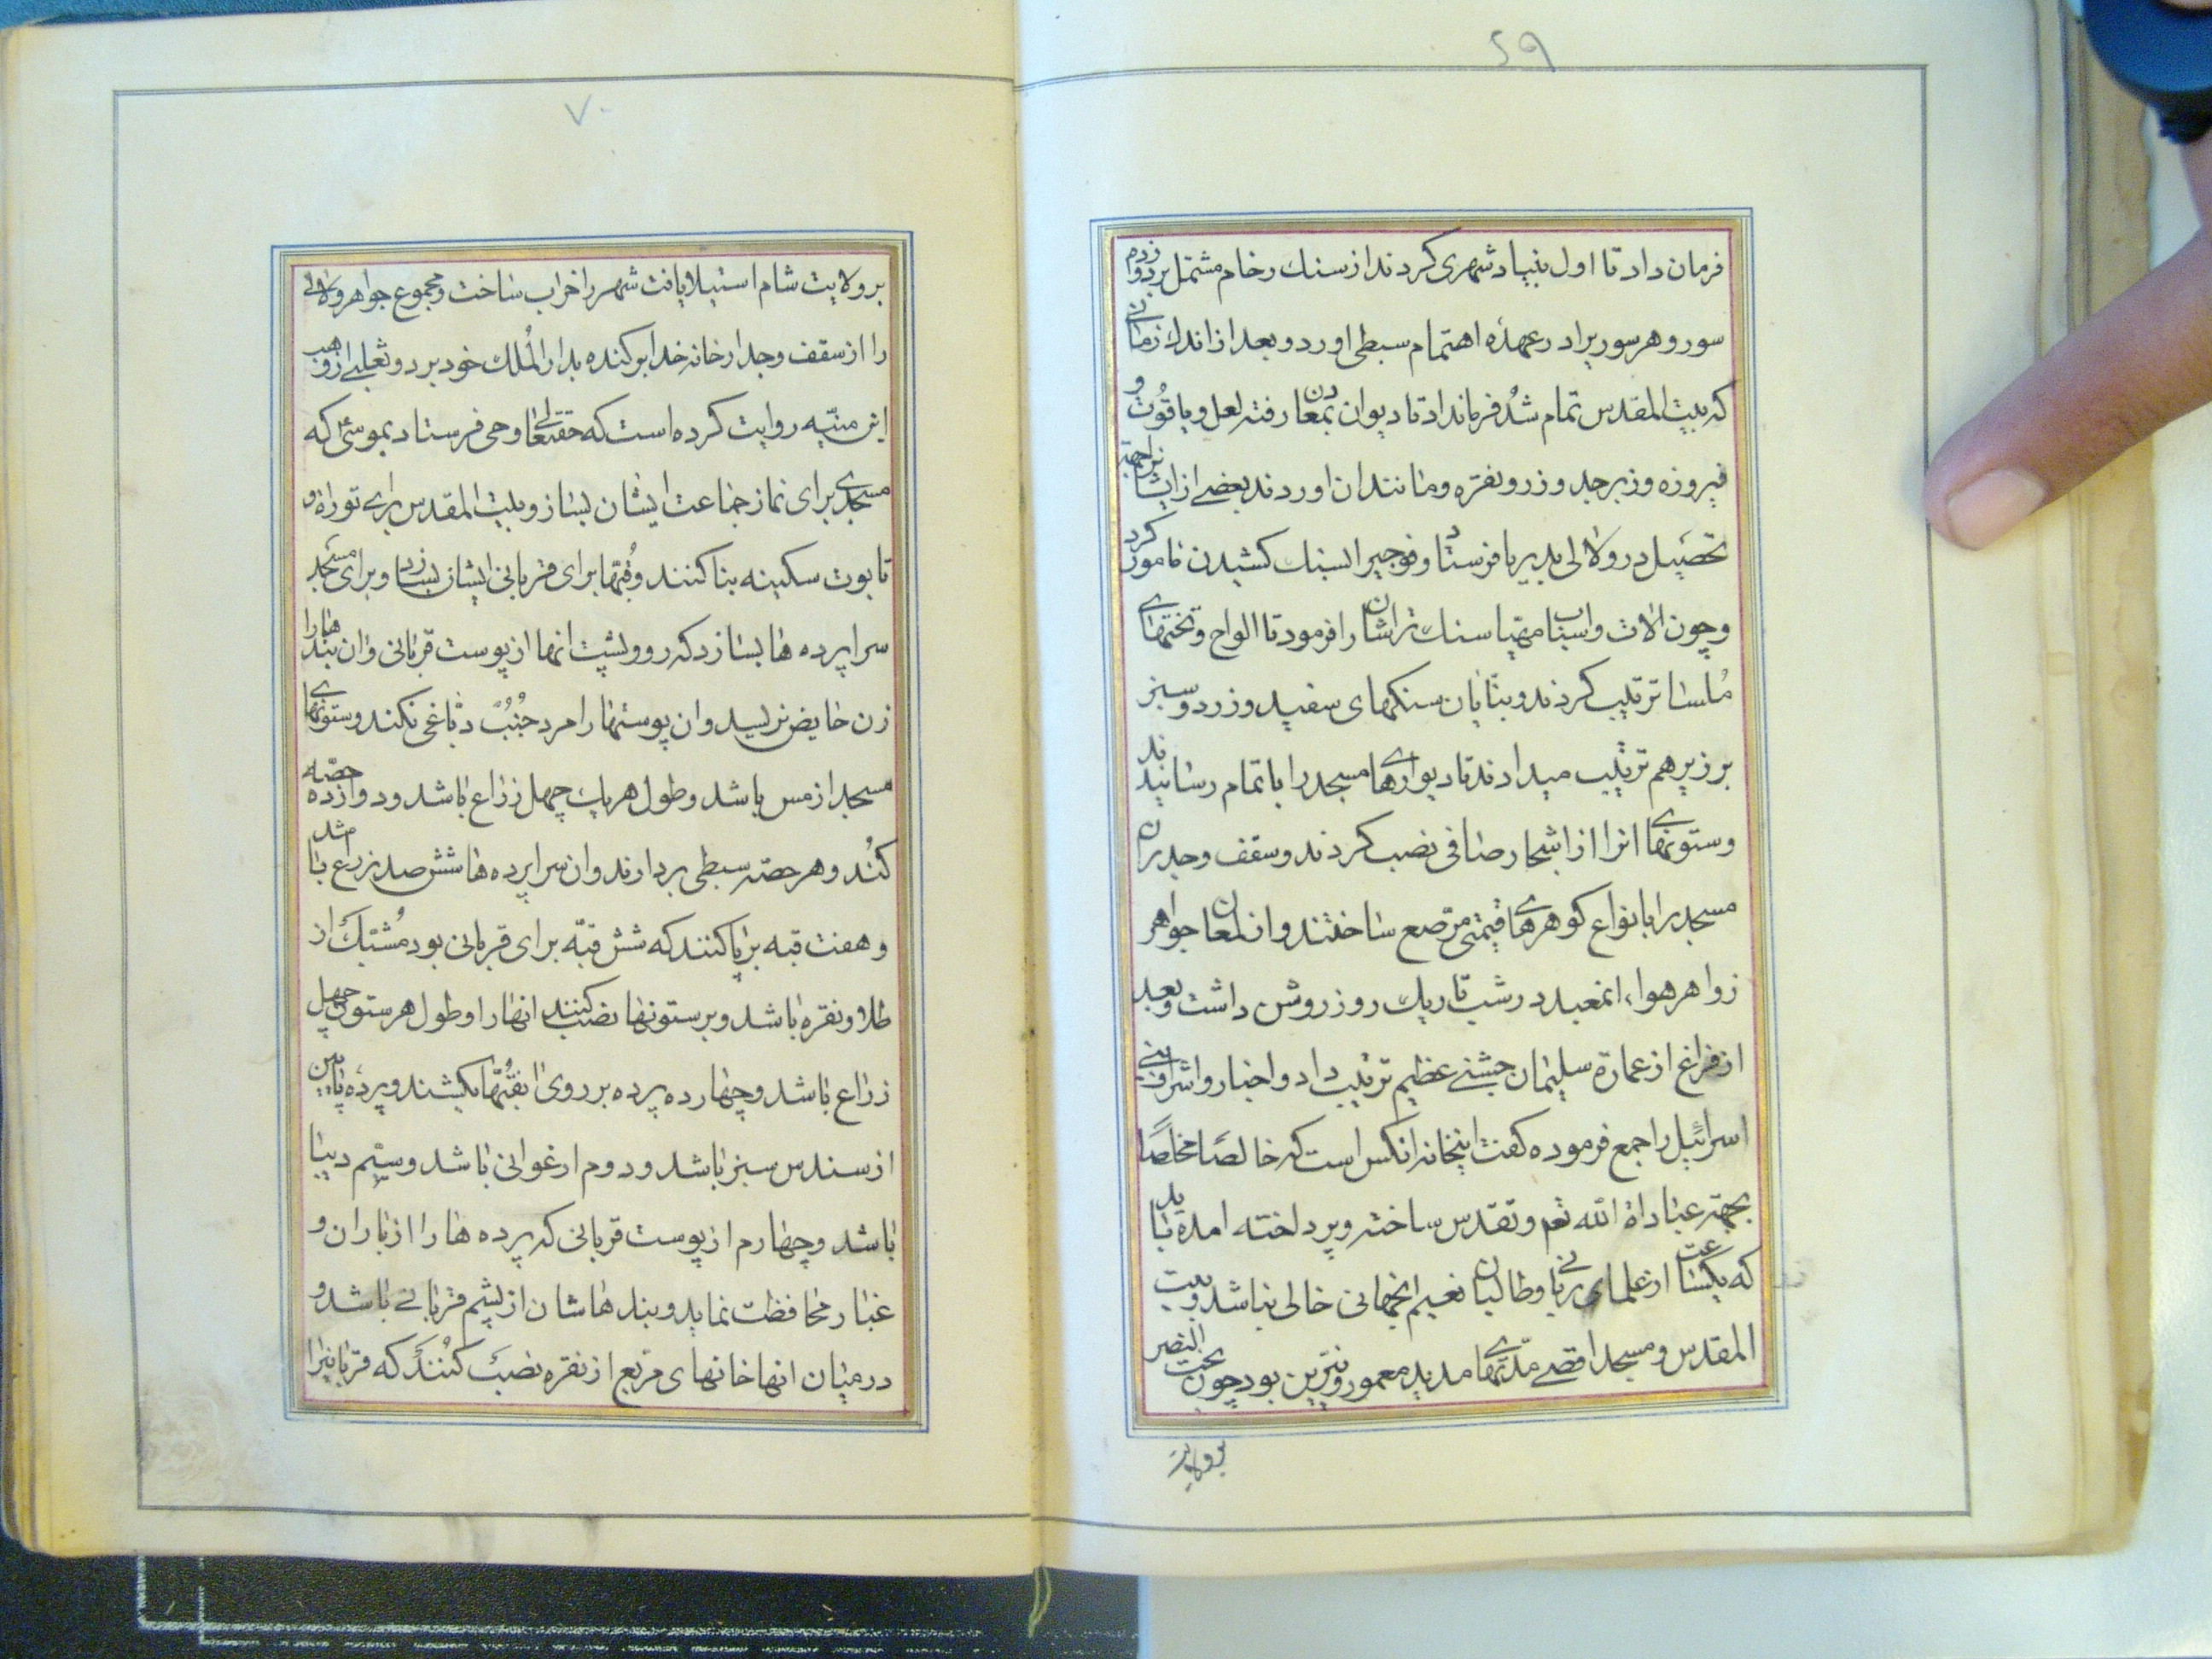 ۶۹
فرمان داد تا اول بنیاد شهری کردند از سنك رخام مشتمل بر دوازدم
سور و هر سوریرا در عهدهٔ اهتمام سبطی اورد و بعد از اندك زمانی
که بیت المقدس تمام شد فرمانداد تا دیوان بمعادن رفته لعل و یاقوت و
فیروزه و زبرجد و زر و نقره و مانند ان اوردند بعضی از ایشانرا جهته
تحصیل در و لالی بدریا فرستاد و فوجیرا بسنك کشیدن مامور کرد
و چون الات و اسباب مهیا سنك تراشانرا فرمود تا الواح و تختهای
ملسا ترتیب کردند و بنایان سنکهای سفید و زرد و سبز
بر زبر هم ترتیب میدادند تا دیوارهای مسجد را باتمام رسانیدند
و ستونهای انرا از اشجار صافی نصب کردند و سقف و جدران
مسجد را بانواع کوهرهای قیمتی مرصع ساختند و از لمعان جواهر
زواهر هواء انمعبد در شب تاریك روز روشن داشت و بعد
از فراغ از عمارة سلیمان جشنی عظیم ترتیب داد و احبار و اشراف بنی
اسرائیل را جمع فرموده کفت اینخانه انکس است که خالصا مخلصا
بجهته عبادة الله تعم و تقدس ساخته و پرداخته امده باید
که یکساعت از علمای ربانی و طالبان نعیم انجهانی خالی نباشد و بیت
المقدس و مسجد اقصی مدتهای مدید معمور و مزین بود چون بخت النصر
بر ولایت
۷۰
بر ولایت شام استیلا یافت شهر را خراب ساخت و مجموع جواهر و لالی
را از سقف و جدار خانه خدا بر کنده بدار الملك خود برد و ثعلبی از وهب
ابن منبه روایت کرده است که حقتعالی وحی فرستاد بموسی که
مسجدی برای نماز جماعت ایشان بساز و بیت المقدس برای توراة و
تابوت سکینه بنا کنند و قبتها برای قربانی ایشان بسازد و برای مسجد
سراپرده ها بسازد که رو و پشت انها از پوست قربانی و ان بندها را
زن حایض نرسید و ان پوستها را مرد جنب دباغی نکند و ستونهای
مسجد از مس باشد و طول هر یك چهل زراع باشد و دوازده حصه
کنند و هر حصه سبطی بردارند و ان سراپرده ها شش صد زراع باشد
و هفت قبه برپا کنند که شش قبه برای قربانی بود مشبك از
طلا و نقره باشد و بر ستونها نصب کنند انها را و طول هر ستونی چهل
زراع باشد و چهارده پرده بر روی ان قبتها بکشند و پرده پایین
از سندس سبز باشد و دوم ارغوانی باشد و سیم دیبا
باشد و چهارم از پوست قربانی که پرده ها را از باران و
غبار محافظت نماید و بندهاشان از پشم قربانی باشد و
در میان انها خانهای مربع از نقره نصب کنند که قربانیرا